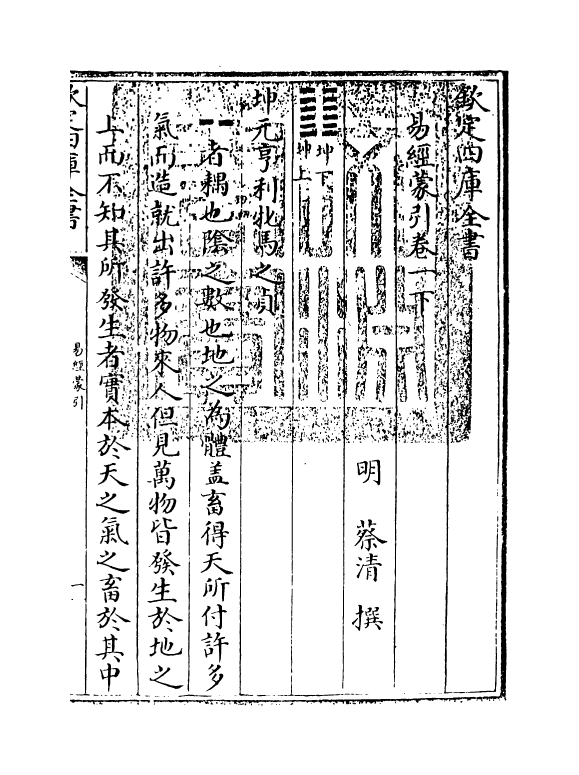 欽定四庫全書
易經蒙引卷一下
明　蔡清　撰
坤下
坤上
坤元亨利牝馬之貞
--者耦也隂之數也地之為體盖畜得天所付許多
氣而造就出許多物來人但見萬物皆發生於地之
上而不知其所發生者實本於天之氣之畜於其中
欽定四庫全書
易經蒙引
一